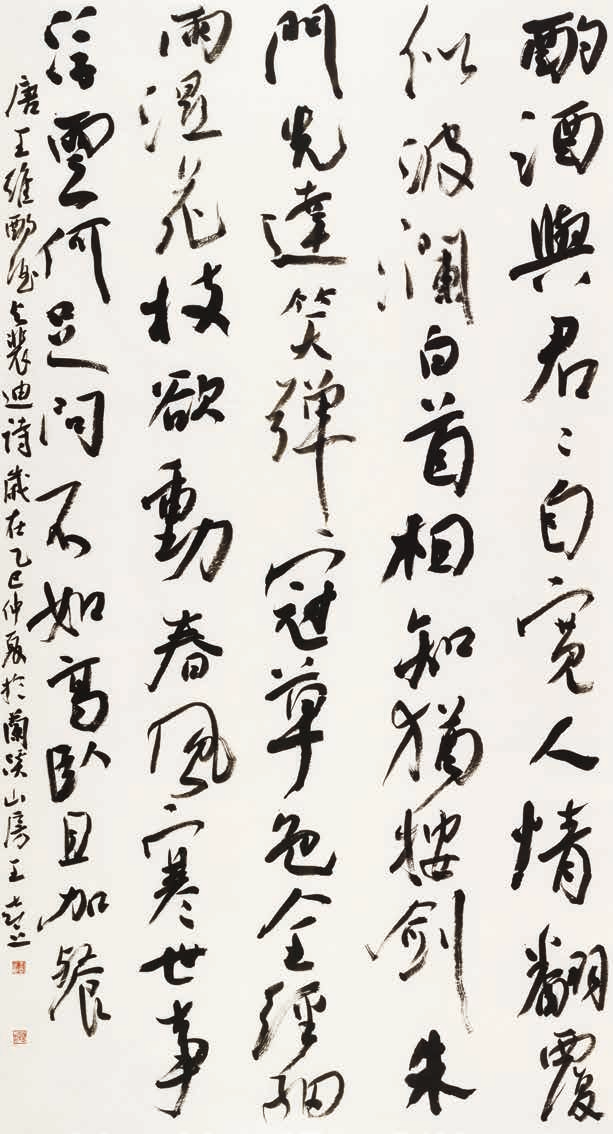 酌酒與君々自寬人情翻覆
似波瀾白首相知猶按劍朱
門先達笑彈冠草色全經細
雨濕花枝欲動春風寒世事
浮雲何足問不如高臥且加餐
唐王維酌酒与裴迪詩歲在乙巳仲夏於蘭溪山房王